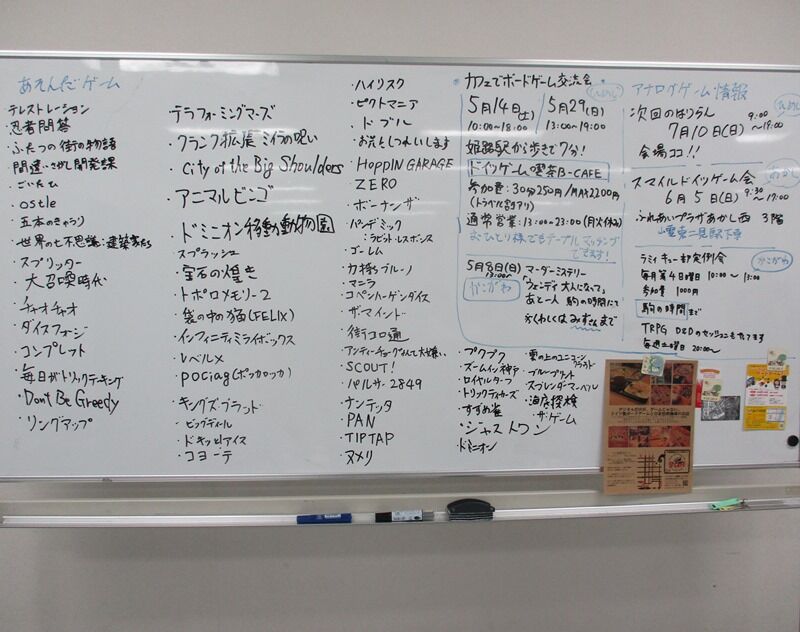 あそんだゲーム
テレストレーション
忍者問答
ふたつの街の物語
間違いさがし開発課
ごいたひ
ostle
五本のきゅうり
世界の七不思議:建築家たち
スプリッター
大召喚時代
チャオチャオ
ダイスフォージ
コンプレット
毎日がトリックテーキング
Don't Be Greedy
リングアップ
テラフォーミングマーズ
クランク拡張 ミイラの呪い
City of the Big Shoulders
アニマルビンゴ
ドミニオン移動動物園
スプラッシュ
宝石の煌き
トポロメモリー2
袋の中の猫(FELIX)
インフィニティミライボックス
レベルメ
pociag(ポッカッカ)
キングズ・ブラッド
ビッグディール
ドキッとアイス
コヨーテ
ハイリスク
ピクトマニア
ドブル
お先にしつれいします
HoppIN GARAGE
ZERO
ボーナンザ
パンデミック
ラピッド・レスポンス
ゴーレム
力持ちブルーノ
マニラ
コペンハーゲンダイス
ザ・マインド
街コロ通
アンディーチョークなんて大嫌い
SCOUT!
パルサー2849
ケンテッタ
PAN
TIPTAP
ヌメリ
カフェでボードゲーム交流会
ひめじ
5月14日(土)
10:00~18:00
5月29(日)
13:00~19:00
姫路駅から歩きで7分!
ドイツゲーム喫茶B-CAFE
参加費:30分250円/MAX2200円
(トラベル割アリ)
通常営業:13:00~23:00(月火休み)
おひとり様でもテーブルマッチングできます!
5月8日(日)
13:00~
かこがわ
マーダーミステリー
「ウェンディ 大人になって」
あと一人 駒の時間にて
くわしくはみずさんまで
プクプク
ズームイン神戸
ロイヤルターフ
トリックテイカーズ
すずめ雀
ジャストワン
ドミニオン
雲の上のユニコーン
ブループリント
スプレンダーマーベル
海底探検
ザ・ゲーム
アナログゲーム情報
ひめじ
次回のはりうぉん
7月10日(日)
9:00
~19:00
会場ココ!!
あかし
スマイルドイツゲーム会
6月5日(日)
9:30
~19:00
ふれあいプラザあかし西 3階
山電東二見駅下車
ラミィキューブ部定例会
かこがわ
毎月第4日曜日 10:00~13:00
参加費 1000円
駒の時間まで
TRPG D&Dのセッションもたてます
毎週土曜日 20:00~